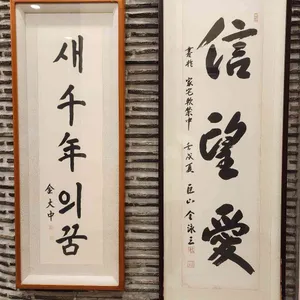 새千年의꿈
金大中
信望愛
書於 家宅軟禁中 壬戌夏 巨山 金泳三